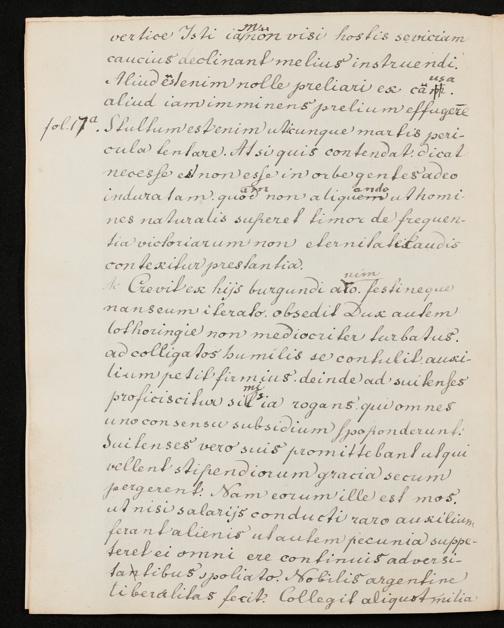 vertice Isti iam non visi hostis seviciam
caucius declinant melius instruendi.
Aliud est enim nolle preliari ex causa
aliud iam imminens prelium effugere
fol. 17a. Stultum est enim utcunque martis peri-
cula tentare. At si quis contendat: dicat
necesse est non esse in orbe gentes adeo
induratam. quod non aliquando ut homi-
nes naturalis superet timor de frequen-
tia victoriarum non eternitatis laudis
contexitur prestantia.
Crevit ex hijs burgundi animo. festineque
nanseum iterato. obsedit Dux autem
lothoringie non mediocriter turbatus.
ad colligatos humilis se contulit. auxi-
lium petit firmius. deinde ad suitenses
proficiscitur rogans. qui omnes
uno consensu subsidium spoponderunt:
Suitenses vero suis promittebant ut qui
vellent stipendiorum gracia secum
pergerent: Nam eorum ille est mos.
ut nisi salarijs conducti raro auxilium
ferant alienis ut autem pecunia suppe-
teret ei omni ere continuis adversi-
tantibus spoliato. Nobilis argentine
liberalitas fecit: Collegit aliquot milia